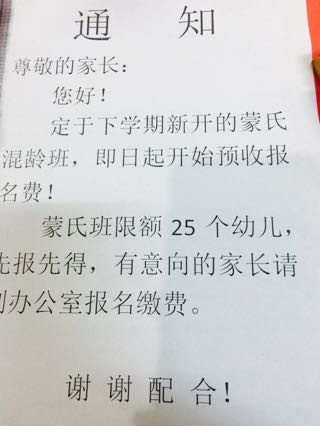 通 知
尊敬的家长：
您好！
定于下学期新开的蒙氏
混龄班，即日起开始预收报
名费！
蒙氏班限额 25 个幼儿，
先报先得，有意向的家长请
到办公室报名缴费。
谢 谢 配 合！